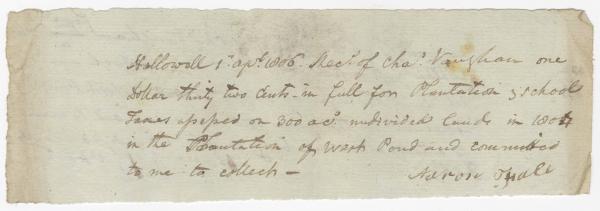 Hallowell 1st apl. 1806. Recd. of Chas. Vaughan one
Dollar thirty two Cents in full for Plantation & School
Taxes assessed on 300 acs. undivided lands in 1804
in the Plantation of West Pond and committed
to me to collect —
Aaron